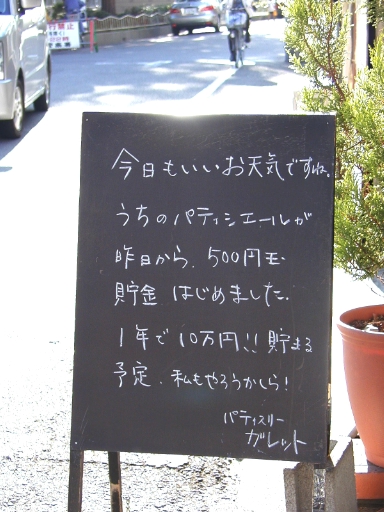 今日もいいお天気ですね。
うちのパティシエールが
昨日から、500円玉
貯金 はじめました。
1年で10万円!! 貯まる
予定、私もやろうかしら!
パティスリー
ガレット